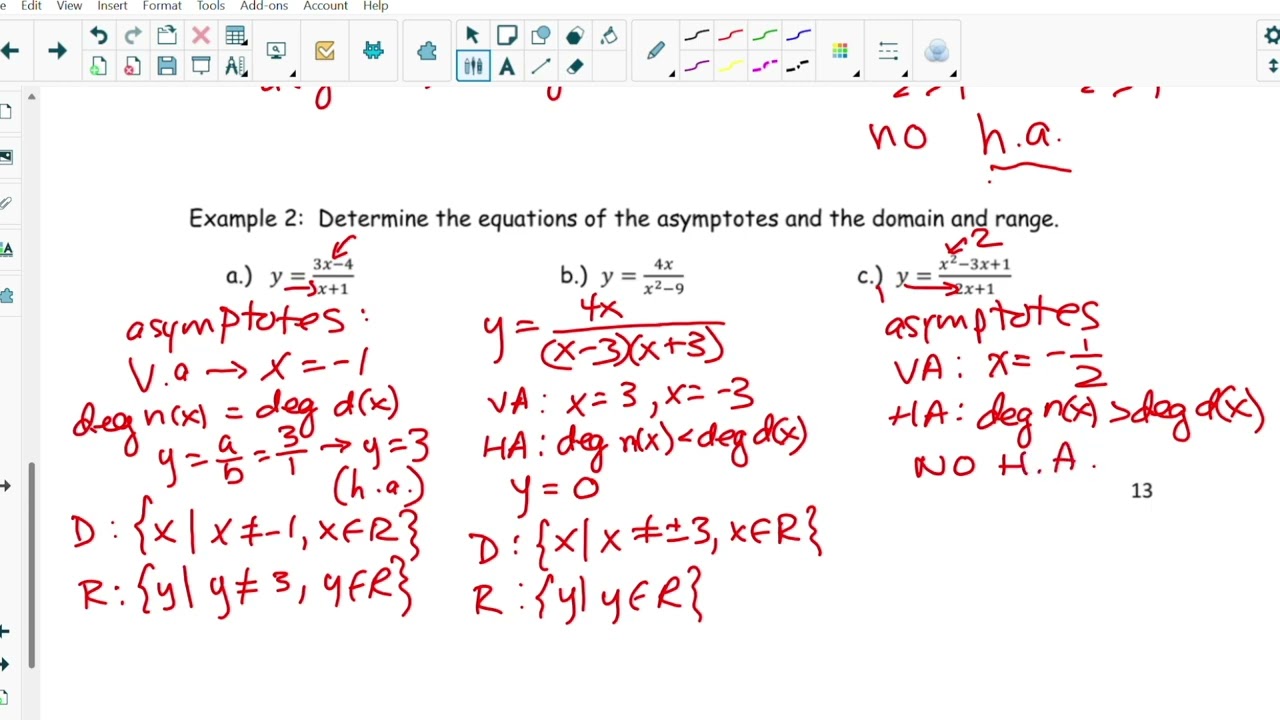 Edit View Insert Format Tools Add-ons Account Help
no h.a.
Example 2: Determine the equations of the asymptotes and the domain and range.
a.) y = 3x−4/x+1
b.) y = 4x/x²−9
c.) y = x²−3x+1/2x+1
2
asymptotes:
V.a → x = -1
deg n(x) = deg d(x)
y = a/b = 3/1 → y = 3
(h.a.)
D : {x | x ≠ -1, x ∈ R}
R : {y | y ≠ 3, y ∈ R}
y = 4x/(x-3)(x+3)
VA : x = 3, x = -3
HA : deg n(x) < deg d(x)
y = 0
D : {x | x ≠ ±3, x ∈ R}
R : {y | y ∈ R}
asymptotes
VA : x = -1/2
HA : deg n(x) > deg d(x)
NO H.A.
13